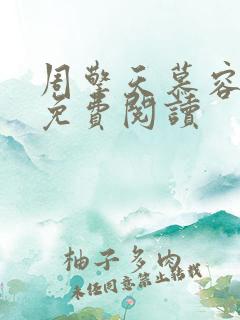 周擎天慕容
免費閱讀
柚子多肉
未经同意禁止转载